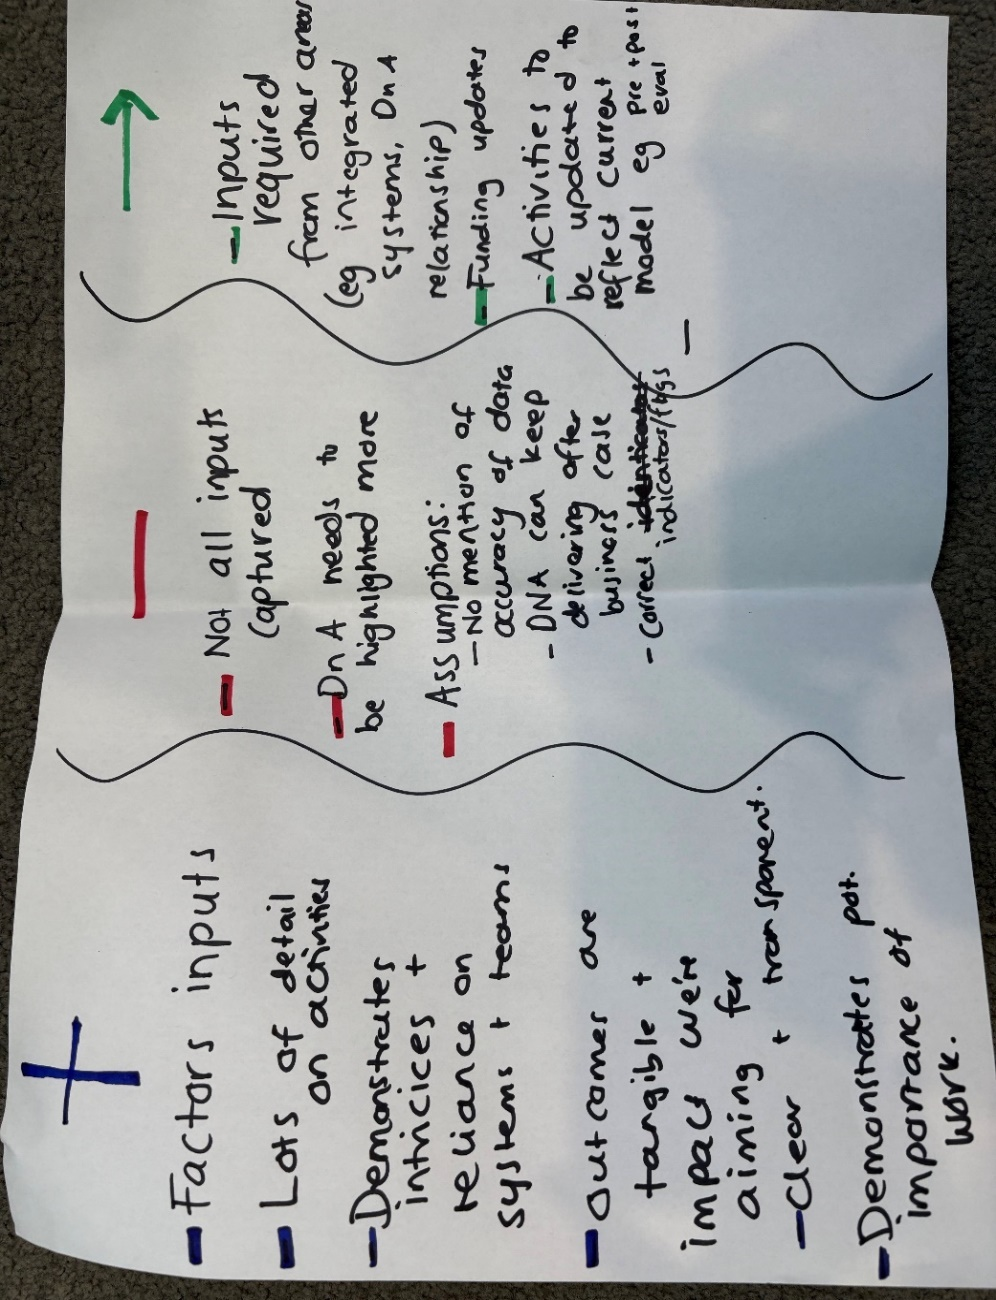 +
- Factors inputs
- Lots of detail
on activities
- Demonstrates
intricices +
reliance on
systems + teams
- Outcomes are
tangible +
impact we're
aiming for
- Clear + transparent.
- Demonstrates pot.
importance of
work.
—
- Not all inputs
captured
- DnA needs to
be highlighted more
- Assumptions:
- No mention of
accuracy of data
- DNA can keep
delivering after
business case
- Correct
indicators/flags
→
- Inputs
required
from other areas
(eg integrated
systems, DnA
relationship)
- Funding updates
- Activities to
be updated to
reflect current
model eg pre + post
eval
-